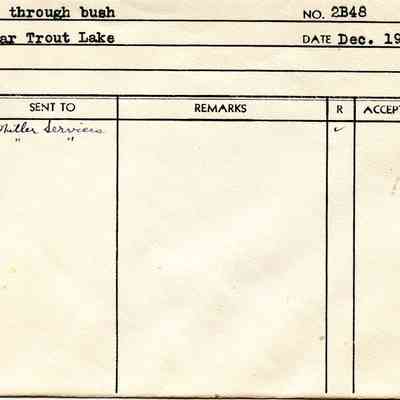 through bush NO. 2B48
ar Trout Lake DATE Dec. 19
SENT TO REMARKS R ACCEPT
Miller Services ✓
" "